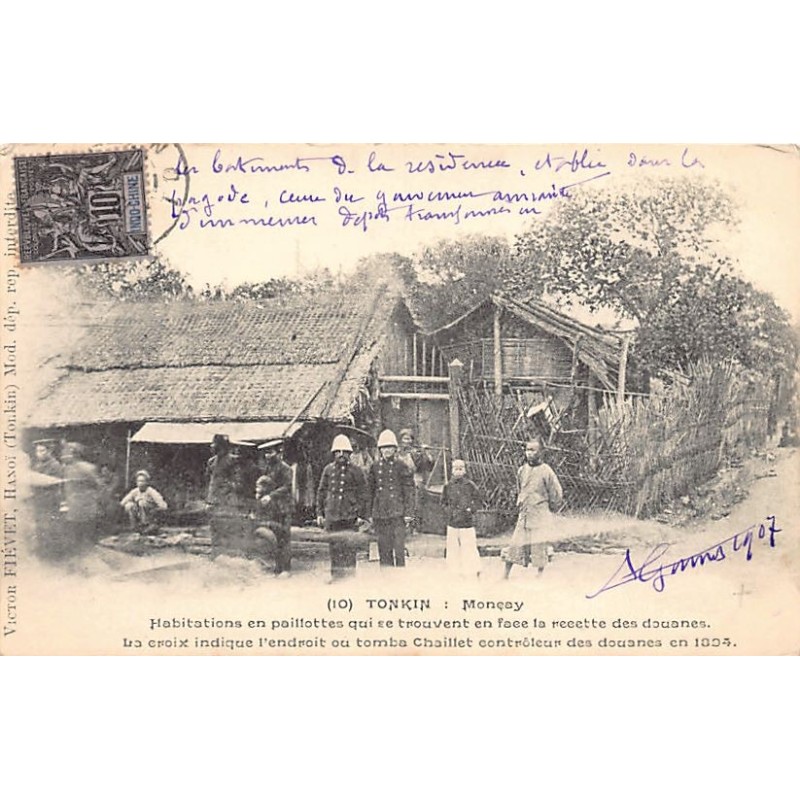 les batiments de la residence, etablie dans la
pagode, ceux du gouverneur annamite
d'immenses depots transformés en
10
INDO-CHINE
(10) TONKIN : Monçay
Habitations en paillottes qui se trouvent en face la recette des douanes.
La croix indique l'endroit ou tomba Chaillet contrôleur des douanes en 1894.
1907
Victor FIÉVET, Hanoï (Tonkin) Mod. dép. rep. interdite